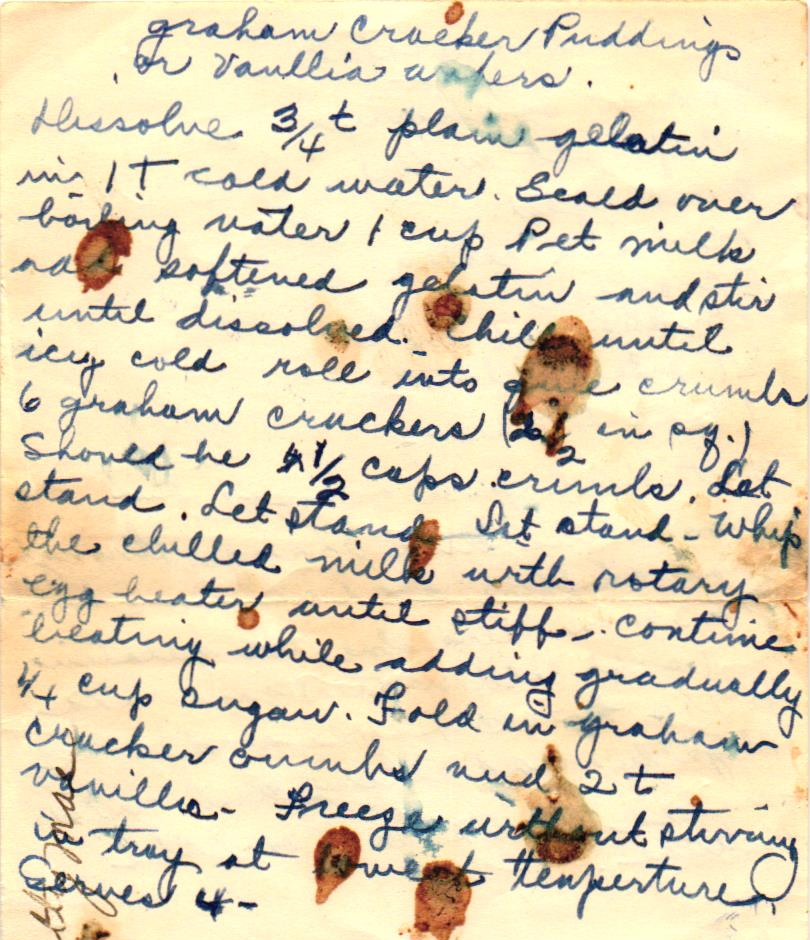 graham Cracker Puddings
or Vanllia wafers.
Dissolve 3/4 t plain gelatin
in 1 T cold water. Scald over
boiling water 1 cup Pet milk
add softened gelatin and stir
until dissolved. Chill until
icy cold roll into fine crumbs
6 graham crackers (2 1/2 in sq.)
Should be 1/2 cups crumbs. Let
stand. Let stand Let stand - Whip
the chilled milk with rotary
egg beater until stiff - Continue
beating while adding gradually
1/4 cup sugar. Fold in graham
cracker crumbs and 2 t
vanilla - Freeze without stirring
in tray at lowest temperture.
Serves 4 -